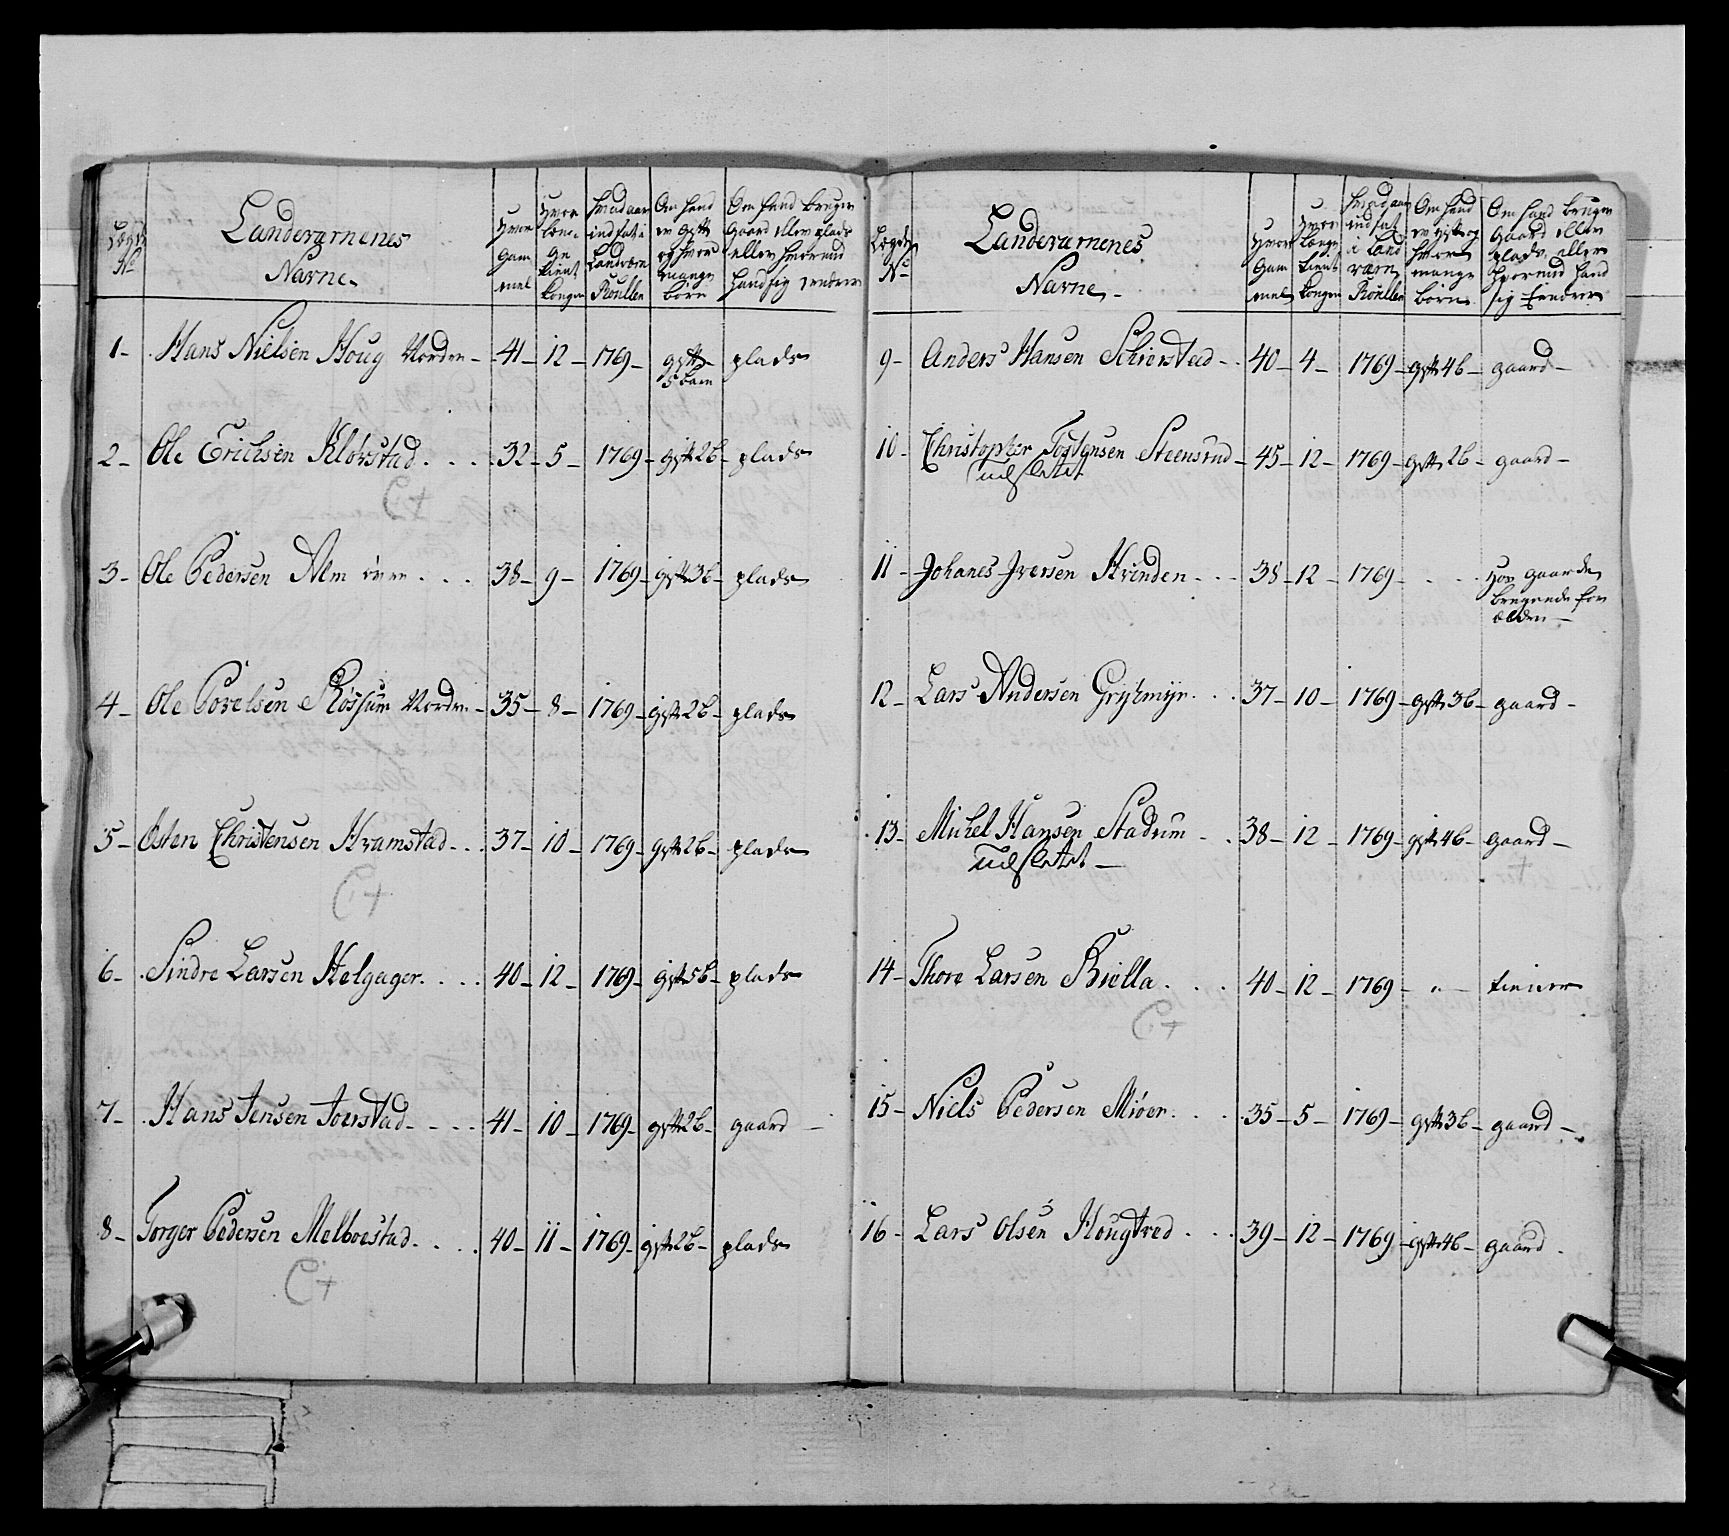 Legds No
Landevarnenes Navne
Hvor gammel
Hvor længe tient kongen
Hvad aar indsat i Landvern Roullen
Om hand er gift og hvor mange børn
Om hand bruger gaard eller plads eller hvormed hand sig ernærer
1 - Hans Nielsen Houg Nordre - 41 - 12 - 1769 - gift 5 barn plads
2 - Ole Erichsen Klørstad . . . 32 - 5 - 1769 - gift 2b - plads
3 - Ole Pedersen Alm øvre . . . 38 - 9 - 1769 - gift 3b - plads
4 - Ole Povelsen Røssum Nordre - 35 - 8 - 1769 - gift 2b - plads
5 - Østen Christensen Kramstad . . 37 - 10 - 1769 - gift 2b - plads
6 - Sindre Larsen Helgager . . . 40 - 12 - 1769 - gift 5b - plads
7 - Hans Jensen Joerstad - - - 41 - 10 - 1769 - gift 2b - gaard
8 - Torger Pedersen Melboestad . . . 40 - 11 - 1769 - gift 2b - plads
Legds No
Landevarnenes Navne -
Hvor gammel
Hvor længe tient kongen
Hvad aar indsat i Landværn Roullen
Om hand er gift og hvor mange børn
Om hand bruger gaard eller plads, eller hvormed hand sig ernærer
9 - Anders Hansen Schierstad - . 40 - 4 - 1769 - gift 4b - gaard -
10 - Christopher Tostensen Steensrud - 45 - 12 - 1769 - gift 2b - gaard -
udslettet
11 - Johanes Iversen Kvinden . . . 38 - 12 - 1769 - . . . Hos gaard
brugende for
ældre -
12 - Lars Andersen Grytmyr . . . 37 - 10 - 1769 - gift 3b - gaard -
13 - Michel Hansen Stadum - . 38 - 12 - 1769 - gift 4b - gaard -
udslettet -
14 - Thore Larsen Biella . . . 40 - 12 - 1769 - " - tiener
15 - Niels Pedersen Miøer . . . 35 - 5 - 1769 - gift 3b - gaard -
16 - Lars Olsen Hougtred . . . 39 - 12 - 1769 - gift 4b - gaard .